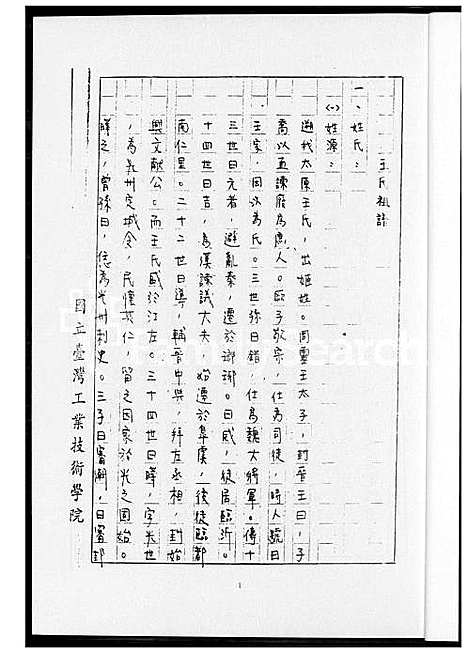 王氏祖譜
一、姓氏：
㈠姓源：
遡我太原王氏，出姬姓。周靈王太子，封晉王曰，子
喬以直諫廢為庶人。子敬宗，仕為司徒，時人號曰
王家，因以為氏。三世孫曰錯，仕為魏大將軍。傳十
三世曰元者，避亂秦，遷於瑯琊。曰威，徙居臨沂。
十四世曰吉，為漢諫議大夫，始遷於皋虞，後徙臨都
南仁里。二十二世曰導，輔晉中興，拜左丞相，封始
興文獻公。而王氏盛於江左。三十四世曰曄，字光世
，為光州定城令，民懷其仁，留之因家於光之固始。
曄之，曾孫曰，恁為光州刺史。三子曰審潮，曰審邽
國立臺灣工業技術學院
1